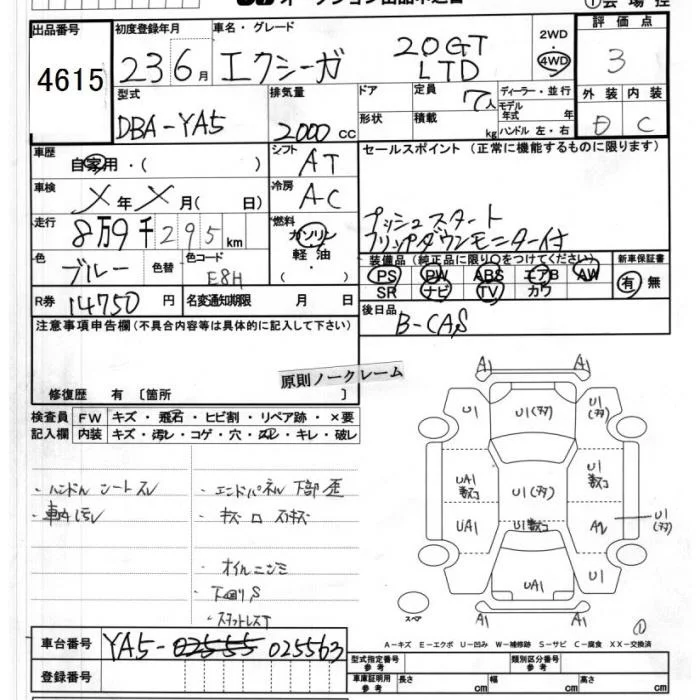 出品番号 4615
初度登録年月 23 6月
車名・グレード エクシーガ 20GT LTD
2WD 4WD
評価点 3
型式 DBA-YA5
排気量 2000 cc
ドア
形状
定員 7人
積載 kg
ディーラー・並行
モデル年式 年
ハンドル 左・右
外装 D 内装 C
車歴 自家用・( )
シフト AT
セールスポイント (正常に機能するものに限ります)
車検 X年X月( 日)
冷房 AC
プッシュスタート
フリップダウンモニター付
走行 8万9千295km
燃料 ガソリン 軽油 ・( ・ )
色 ブルー 色替
色コード E8H
装備品 (純正品に限り○をつけてください)
新車保証書 有 無
PS PW ABS エアB AW
SR ナビ TV カワ
R券 14750円
名変通知期限 月 日
後日品 B-CAS
注意事項申告欄(不具合内容等は具体的に記入して下さい)
原則ノークレーム
修復歴 有 〔箇所 〕
検査員記入欄
FW キズ・飛石・ヒビ割・リペア跡・×要
内装 キズ・汚レ・コゲ・穴・スレ・キレ・破レ
・ハンドル シートスレ
・車内汚レ
・エンドパネル下部歪
・オイルニジミ
・下回りS
A1 A1
U1 U1(タタ) U1(タタ)
UA1 数コ U1(タタ) U1 数コ
UA1 U1数コ A2 U1(タタ)
UA1 U1
A1 A1
スペア
A-キズ E-エクボ U-凹み W-補修跡 S-サビ C-腐食 XX-交換済
車台番号 YA5-02555 025563
登録番号
型式指定番号 参考
類別区分番号 参考
車庫証明用 参考 長さ cm 幅 cm 高さ cm